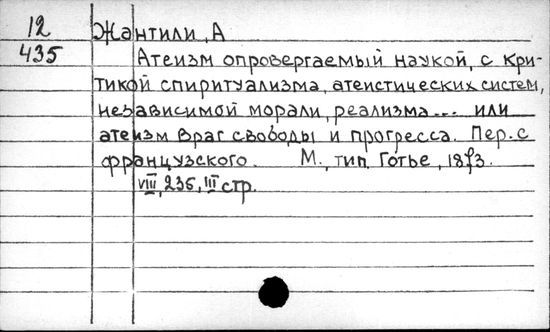 12 Жантили, А
435 Атеизм опровергаемый наукой, с кри-
тикой спиритуализма, атеистических систем,
независимой морали, реализма... или
атеизм враг свободы и прогресса. Пер. с
французского. М., тип. Готье, 1873.
VIII, 235, III стр.